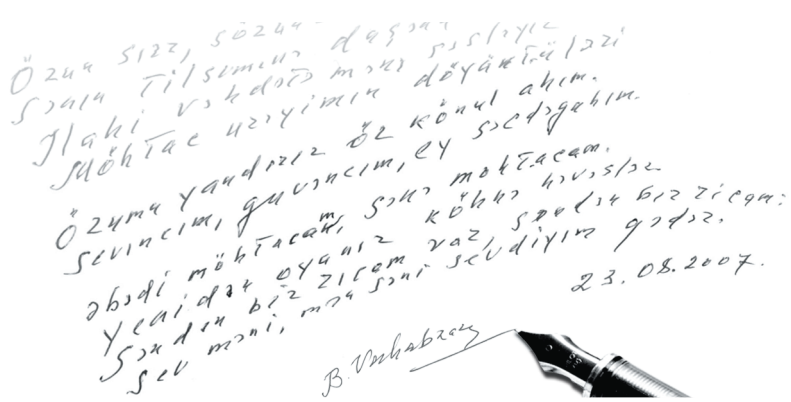 Özün sirr, sözün
Sənin Tilsiminə
İlahi vəhdətə məni səsləyir
Möhtac ürəyimin döyüntüləri
Özümü yandırır öz könül ahım.
Sevincim, güvəncim, ey səcdəgahım.
Əbədi möhtacam, sənə möhtacam.
Yenidən oyanır köhnə həvəslər
Səndən bir ricam var, səndən bir ricam:
Sev məni, mən səni sevdiyim qədər.
23.08.2007.
B. Vahabzadə